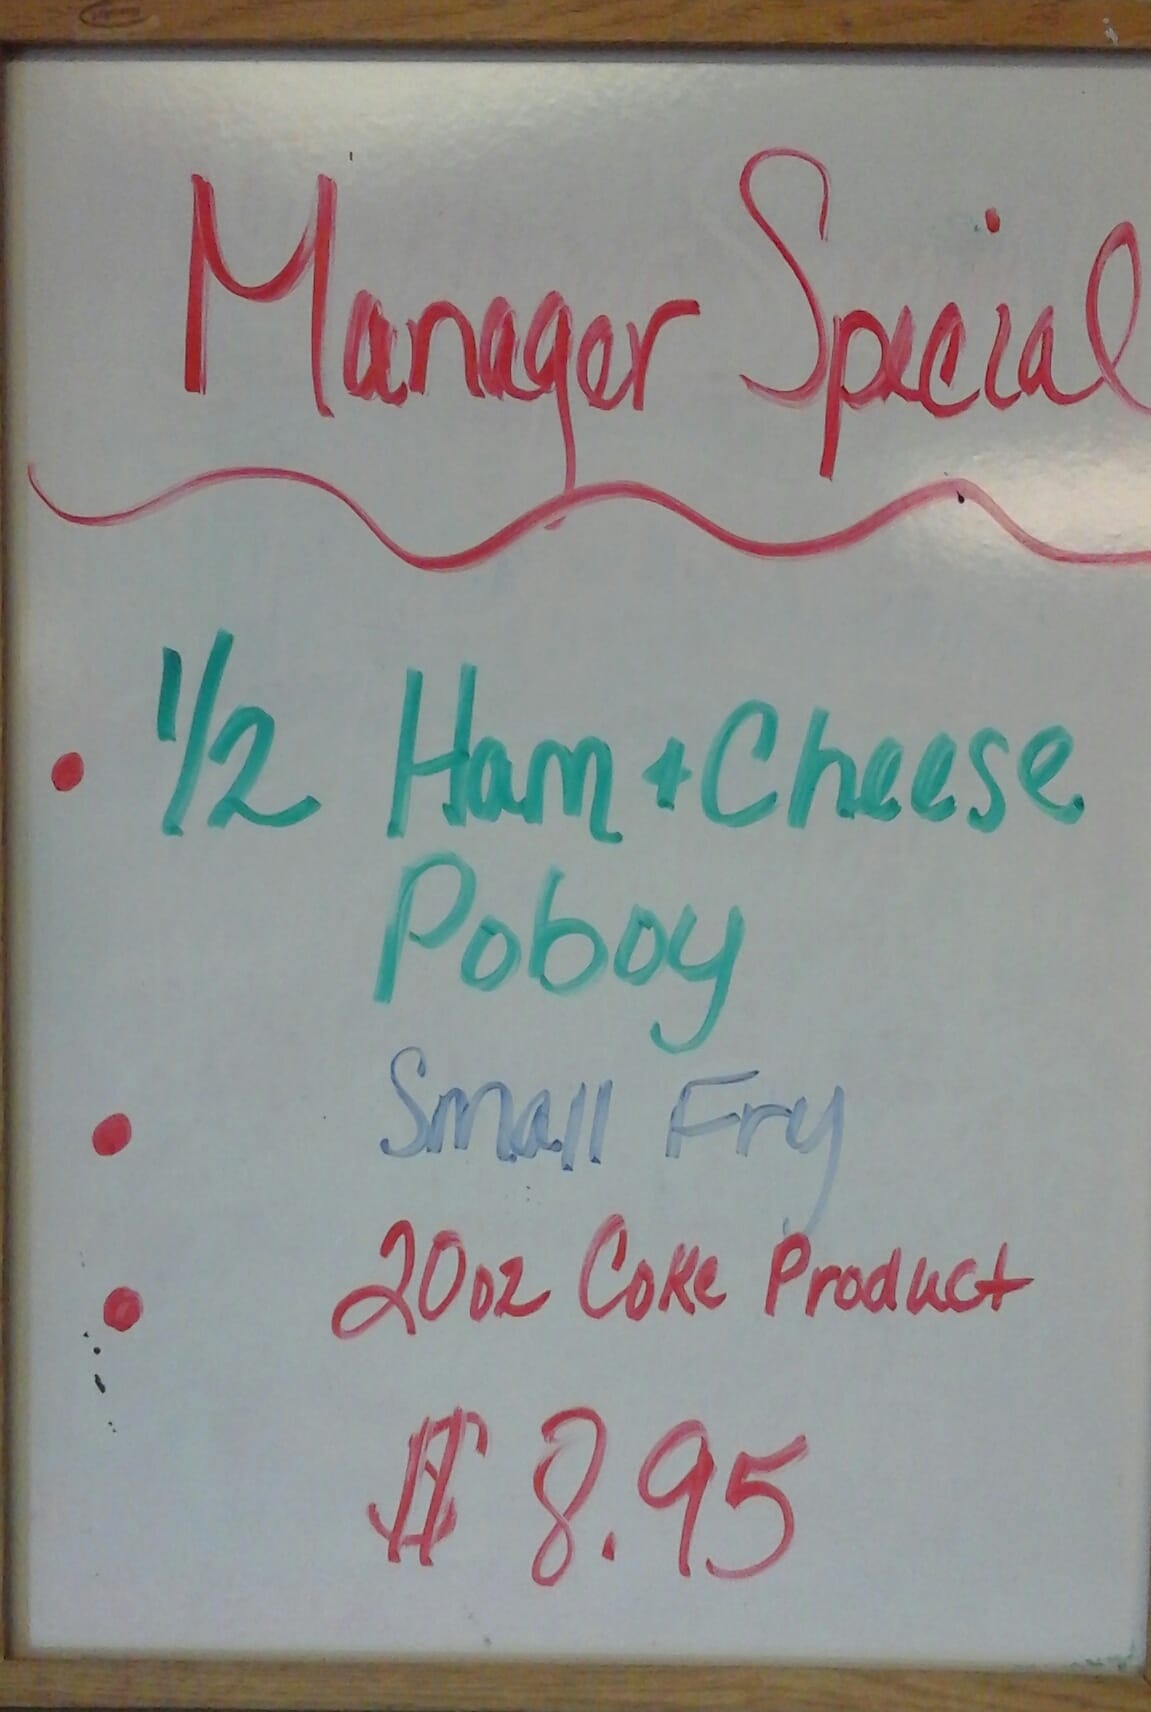 Manager Special
• 1/2 Ham + Cheese
Poboy
• Small Fry
• 20oz Coke Product
$8.95